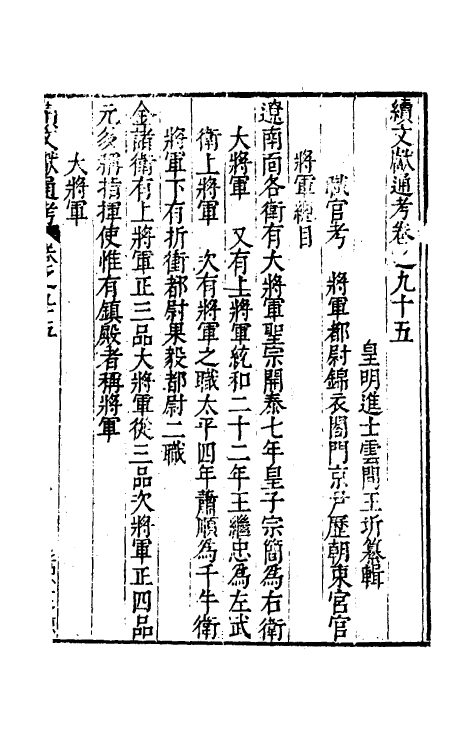 續文獻通考卷之九十五
皇明進士雲間王圻纂輯
職官考　將軍都尉錦衣閣門京尹歷朝東宮官
將軍總目
遼南面各衛有大將軍聖宗開泰七年皇子宗簡為右衛
大將軍　又有上將軍統和二十二年王繼忠為左武
衛上將軍　次有將軍之職太平四年蕭順為千牛衛
將軍下有折衝都尉果毅都尉二職
金諸衛有上將軍正三品大將軍從三品次將軍正四品
元多稱指揮使惟有鎮殿者稱將軍
大將軍
續文獻通考　卷之九十五